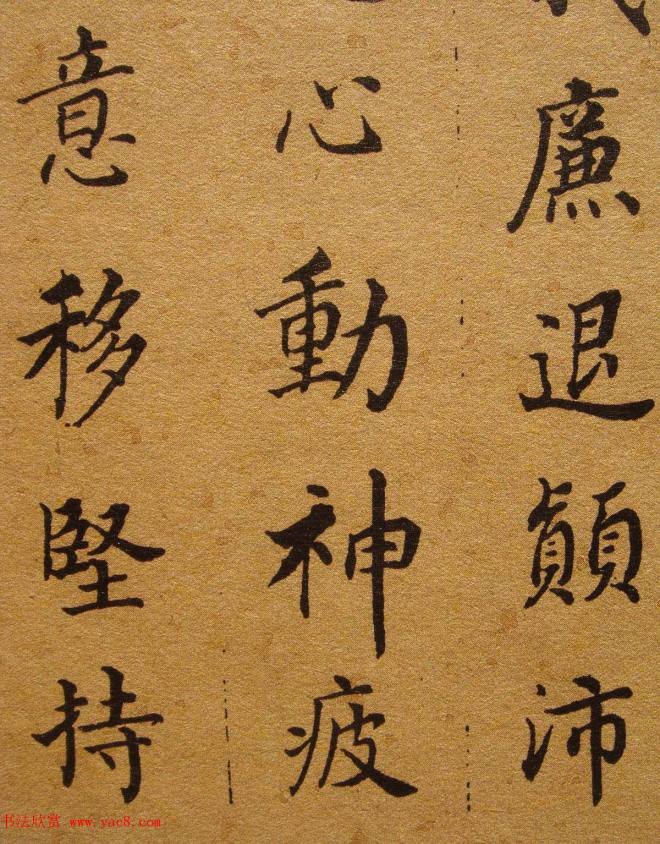 廉退顛沛
心動神疲
意移堅持
书法欣赏 www.yac8.com